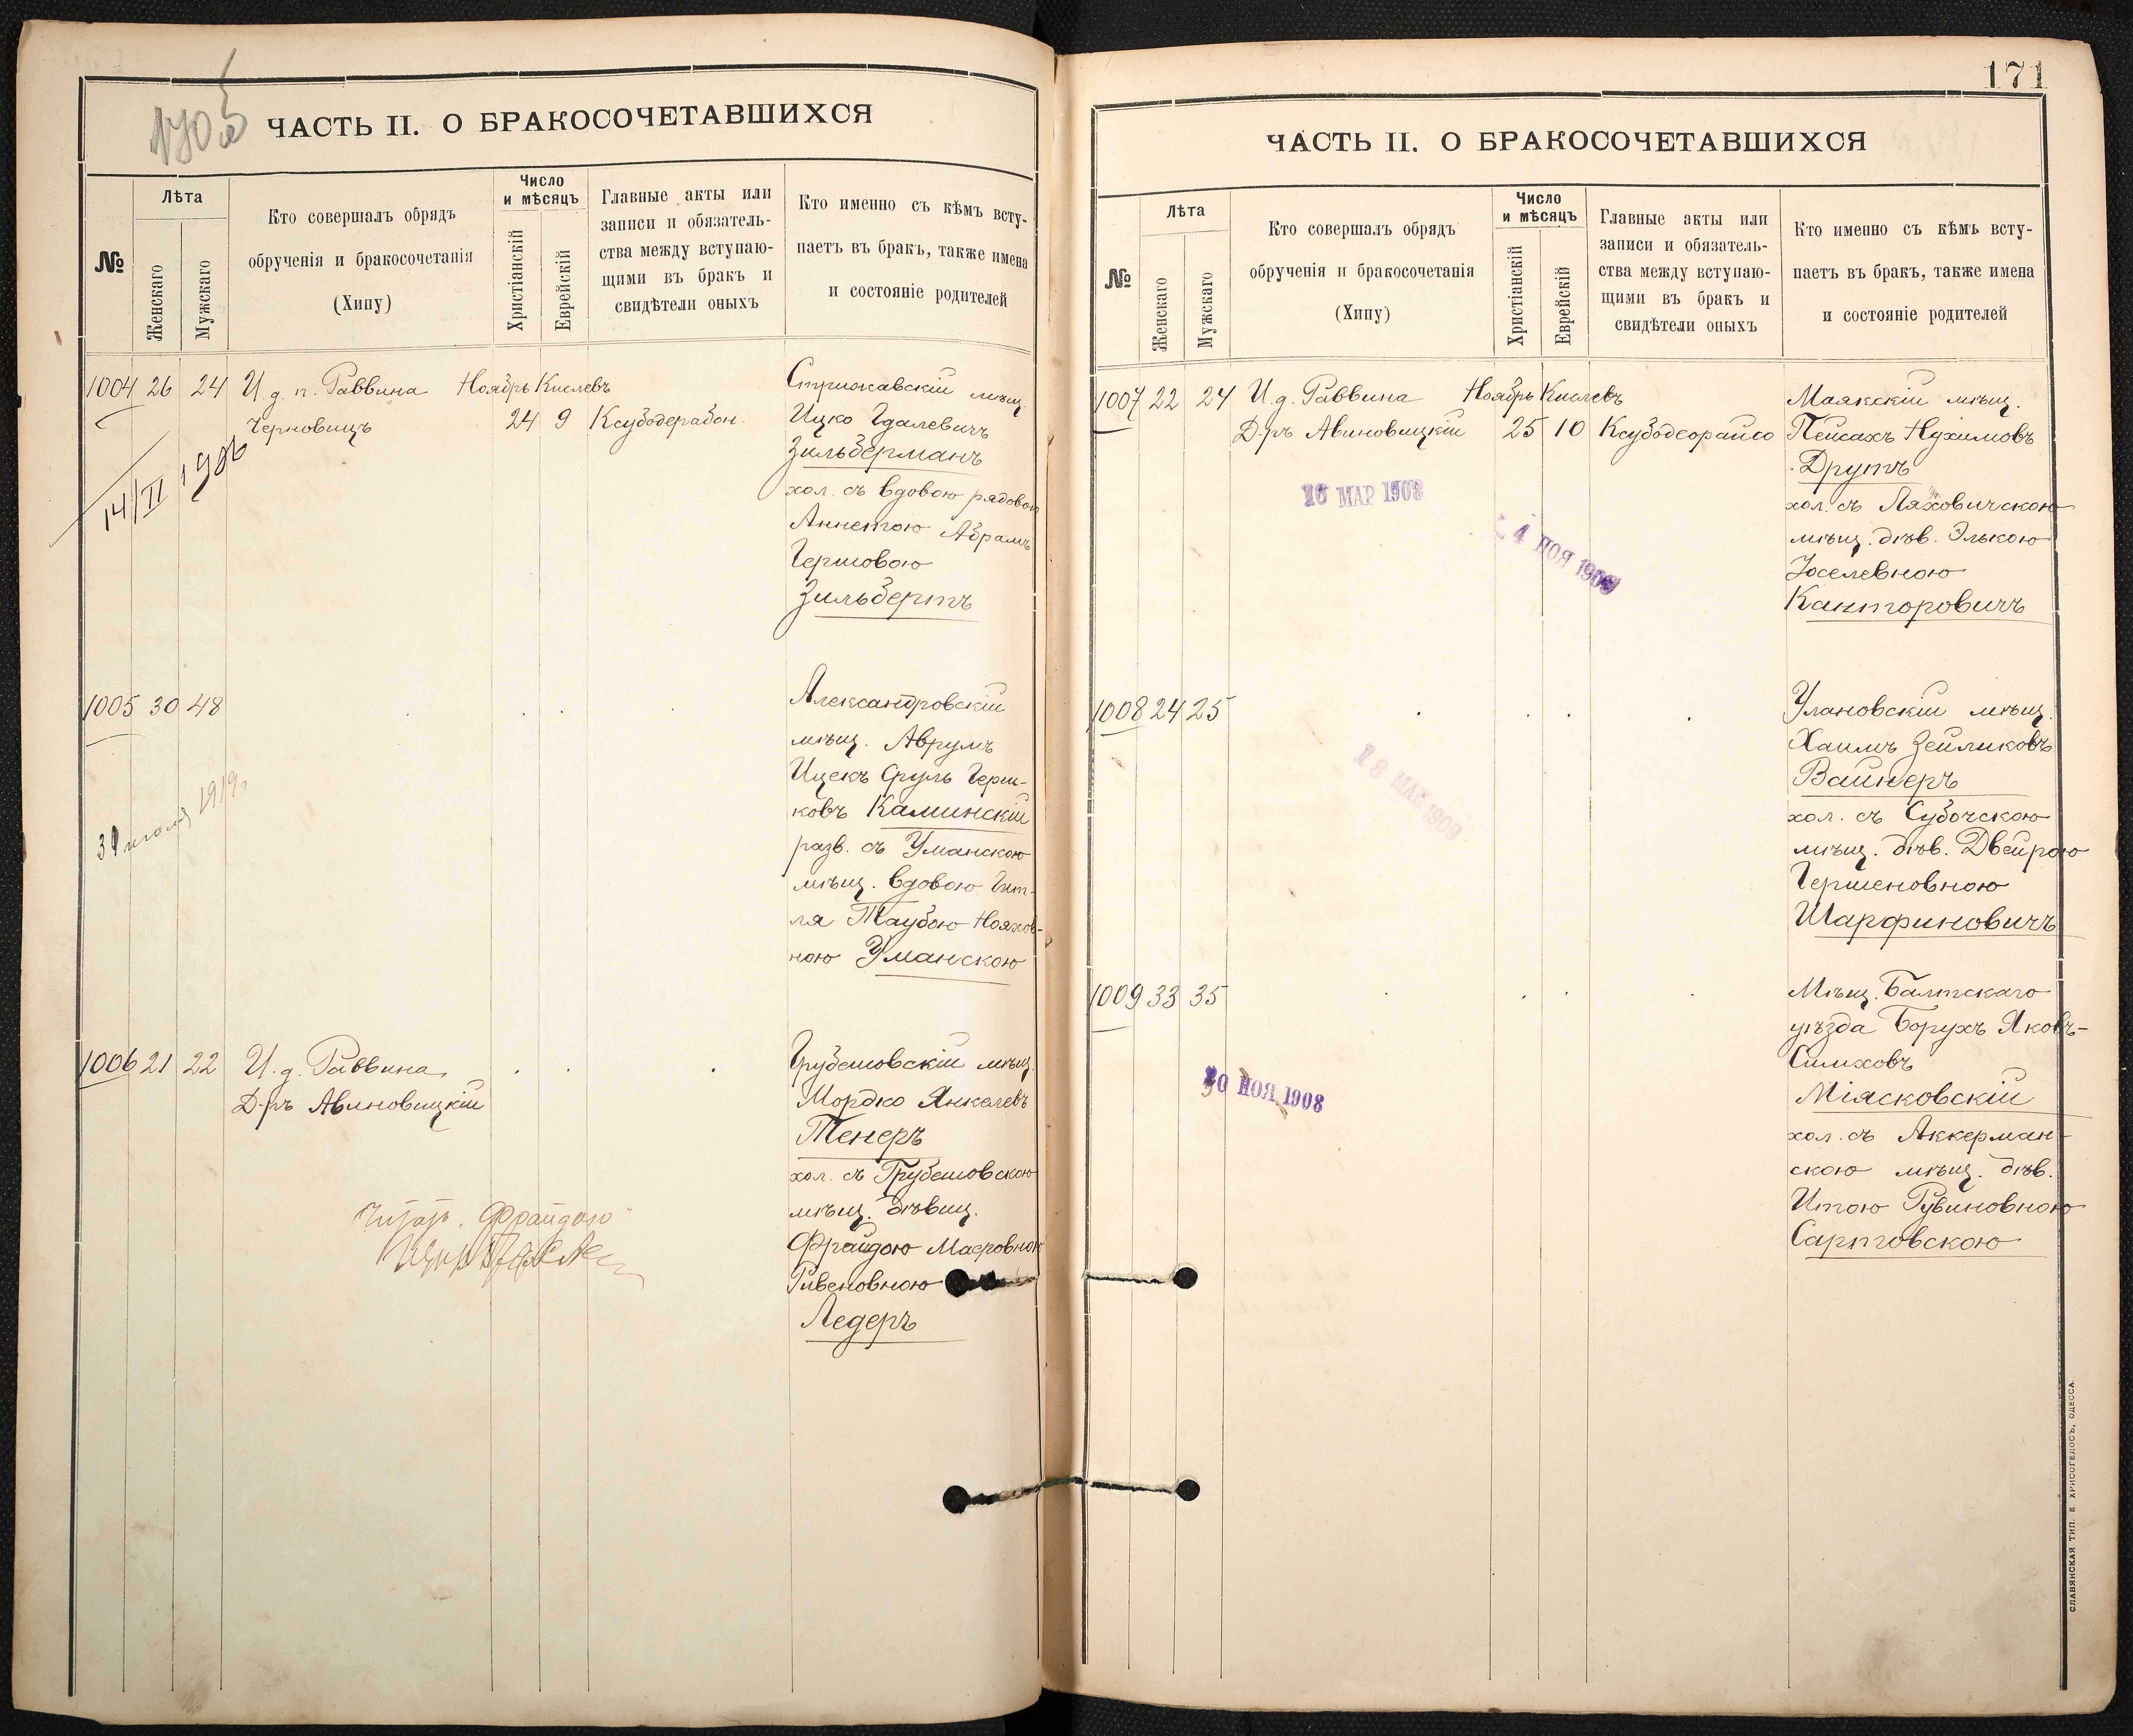 ЧАСТЬ II. О БРАКОСОЧЕТАВШИХСЯ
№
Лѣта
Женскаго
Мужскаго
Кто совершалъ обрядъ
обрученія и бракосочетанія
(Хипу)
Число
и мѣсяцъ
Христіанскій
Еврейскій
Главные акты или
записи и обязатель-
ства между вступаю-
щими въ бракъ и
свидѣтели оныхъ
Кто именно съ кѣмъ всту-
паетъ въ бракъ, также имена
и состояніе родителей
1004 26 24 И. д. п. Раввина Ноябрь Кислевъ
Черновицъ 24 9 Ксубодерабон.
14/II 1906
Стрижавскій мѣщ.
Ицко Гдалевичъ
Зильберманъ
хол. съ вдовою рядовою
Аннетою Абрамъ
Гершовою
Зильбертъ
1005 30 48
31 июля 1919 г.
Александровскій
мѣщ. Аврумъ
Ицекъ Сруль Герш-
ковъ Каминскій
разв. съ Уманскою
мѣщ. вдовою Гит-
ля Таубою Нояхов-
ною Уманскою
1006 21 22 И. д. Раввина
Д-ръ Авиновицкій
Грубешовскій мѣщ.
Мордко Янкелевъ
Тенеръ
хол. съ Грубешовскою
мѣщ. дѣвиц.
Фрайдою Маеровною
Ривеновною
Ледеръ
Читать. Фрайдою
171
ЧАСТЬ II. О БРАКОСОЧЕТАВШИХСЯ
№
Лѣта
Женскаго
Мужскаго
Кто совершалъ обрядъ
обрученія и бракосочетанія
(Хипу)
Число
и мѣсяцъ
Христіанскій
Еврейскій
Главные акты или
записи и обязатель-
ства между вступаю-
щими въ бракъ и
свидѣтели оныхъ
Кто именно съ кѣмъ всту-
паетъ въ бракъ, также имена
и состояніе родителей
1007 22 24 И. д. Раввина Ноябрь Кислевъ
Д-ръ Авиновицкій 25 10 Ксубодеорайсо
16 МАР 1908
4 НОЯ 1909
Маякскій мѣщ.
Пейсахъ Нухимовъ
Друтъ
хол. съ Ляховичскою
мѣщ. дѣв. Элькою
Іоселевною
Канторовичъ
1008 24 25
18 МАЯ 1909
Улановскій мѣщ.
Хаимъ Зейликовъ
Вайнеръ
хол. съ Субочскою
мѣщ. дѣв. Двейрою
Гершеновною
Шарфиновичъ
1009 33 35
20 НОЯ 1908
Мѣщ. Балтскаго
уѣзда Борухъ Яковъ-
Симховъ
Міясковскій
хол. съ Аккерман-
скою мѣщ. дѣв.
Итою Рувиновною
Сартовскою
СЛАВЯНСКАЯ ТИП. Е. ХРИСОГЕЛОСЪ, ОДЕССА.